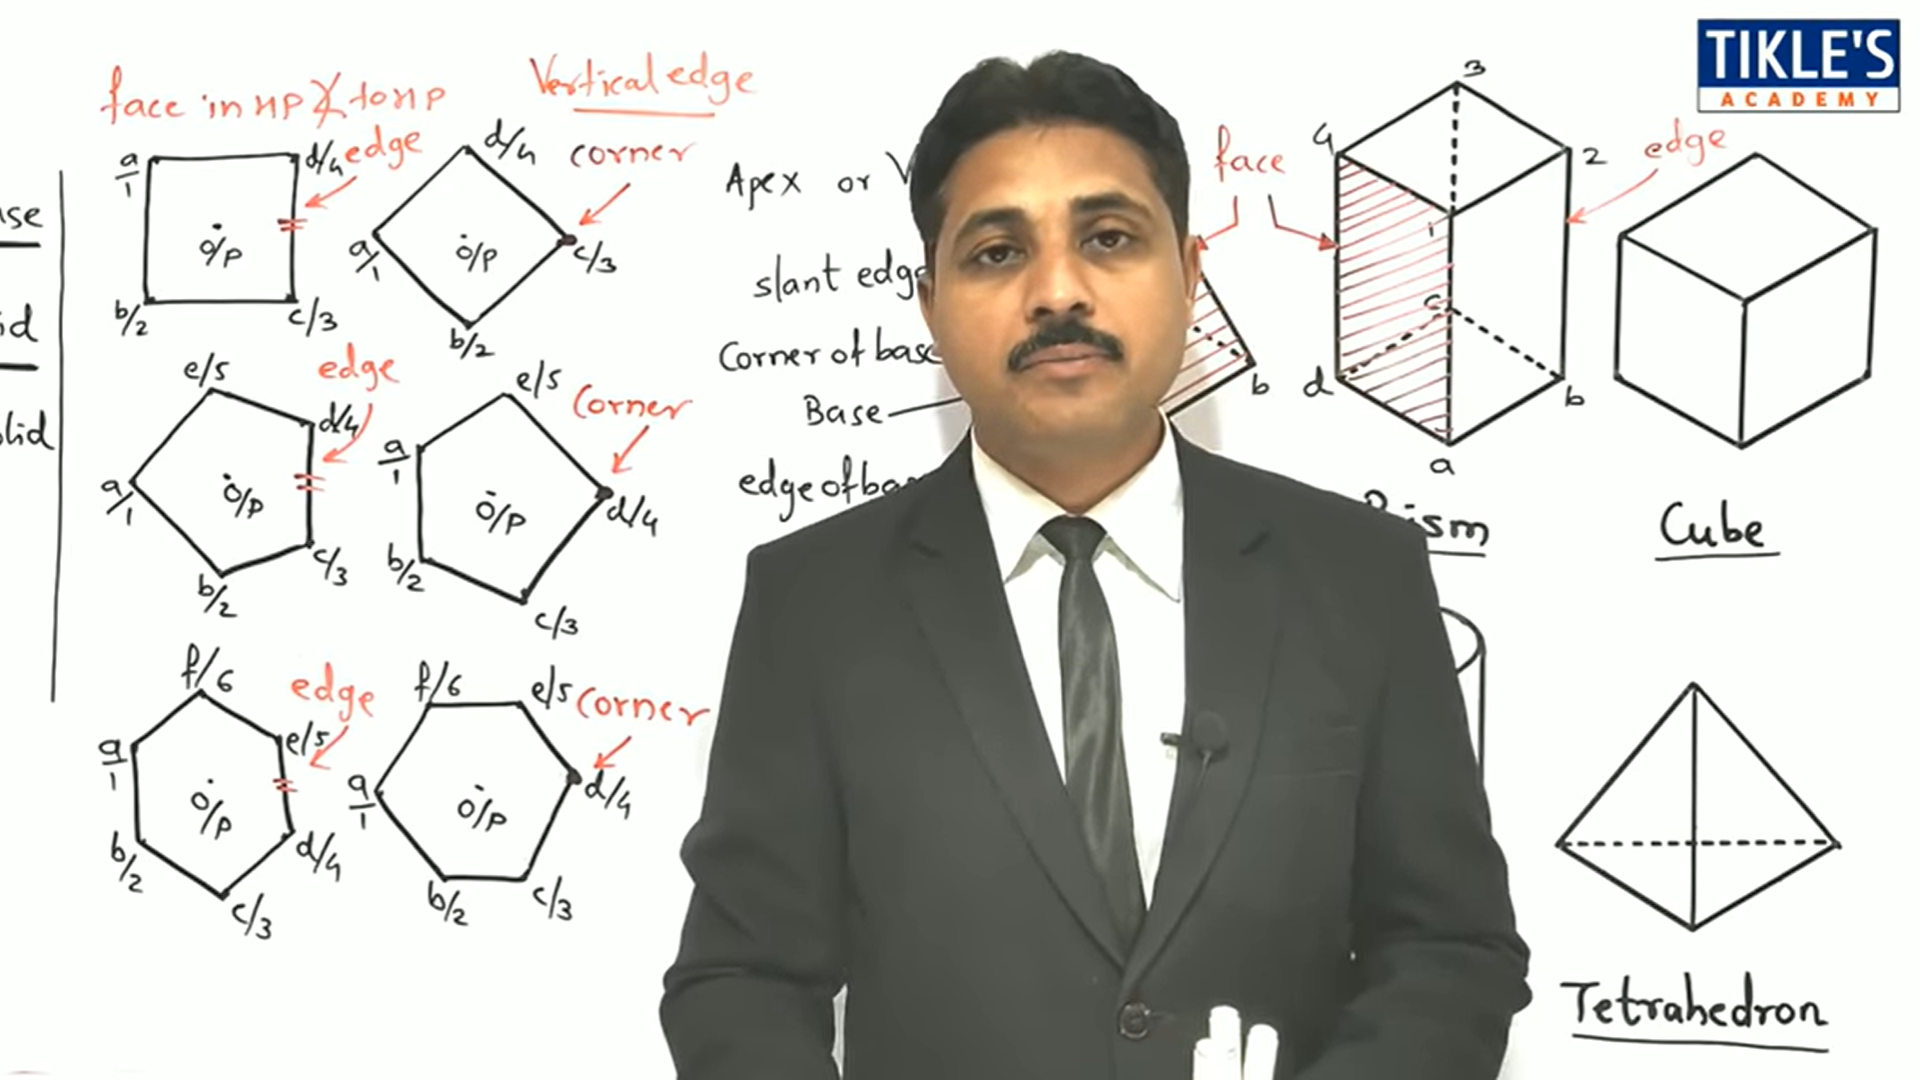 TIKLE'S
ACADEMY
face in HP X to HP
Vertical edge
a/1
d/4
edge
o/p
b/2
c/3
d/4
corner
a/1
o/p
c/3
b/2
e/5
edge
d/4
a/1
o/p
c/3
b/2
e/5
Corner
a/1
o/p
d/4
b/2
c/3
f/6
edge
a/1
e/5
o/p
b/2
d/4
c/3
f/6
e/5
Corner
a/1
o/p
d/4
b/2
c/3
Apex or
slant edge
Corner of base
Base
edge of
face
b
3
4
2
edge
1
c
d
b
a
Cube
Tetrahedron